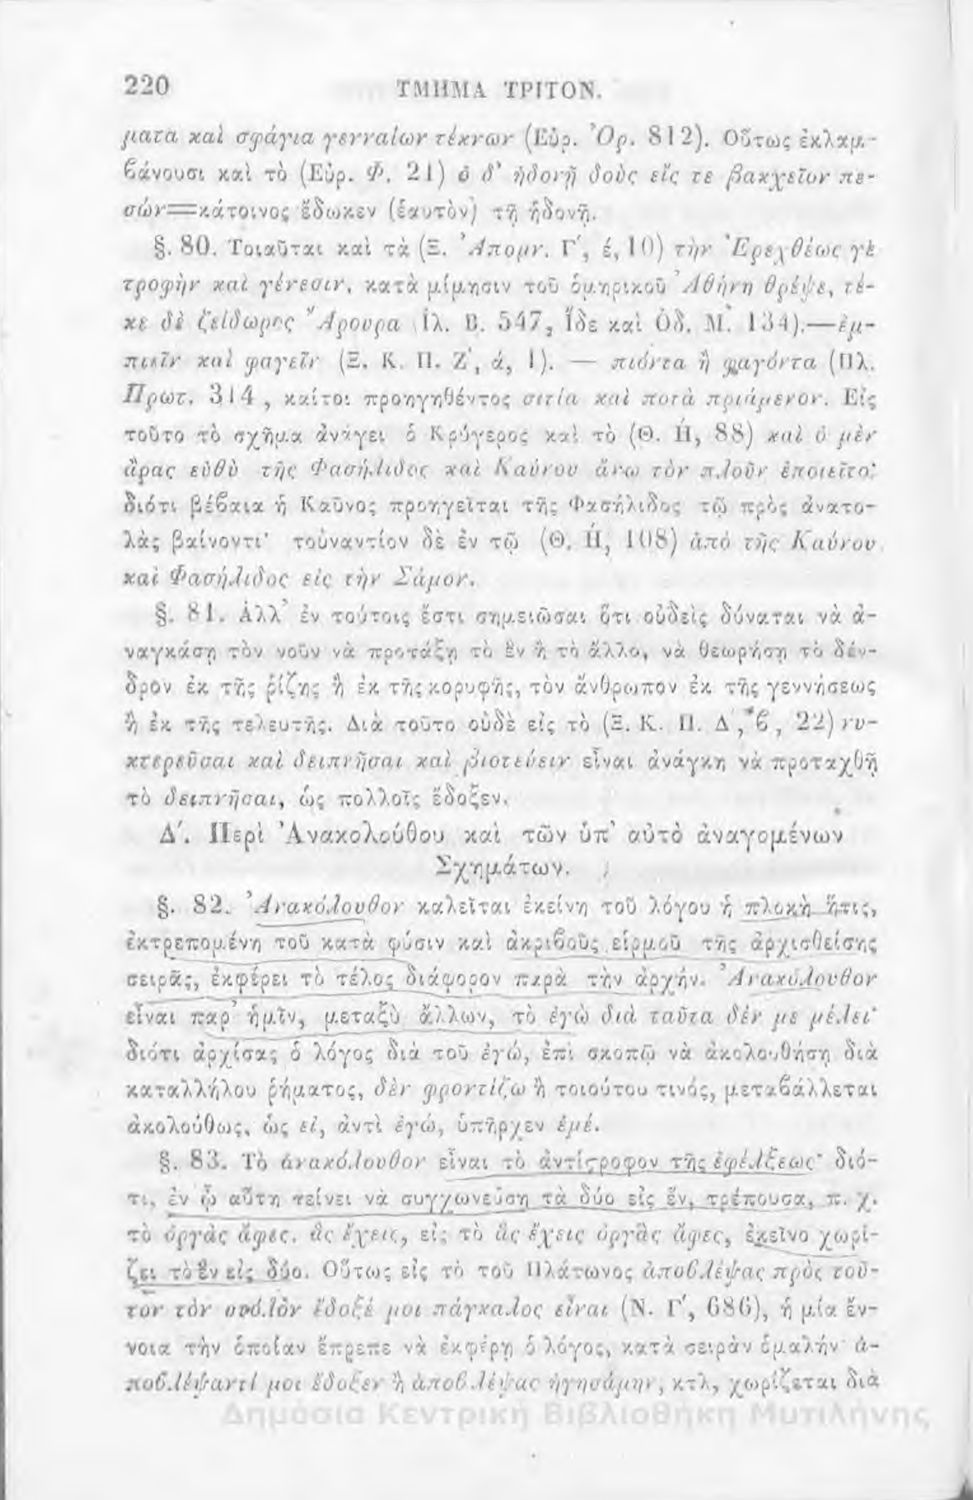 220 ΤΜΗΜΑ ΤΡΙΤΟΝ.
ματα καὶ σφάγια γενναίων τέκνων (Εὐρ. Ὀρ. 812). Οὕτως ἐκλαμ-
βάνουσι καὶ τὸ (Εὐρ. Φ. 21) ὁ δ' ἡδονῇ δοὺς εἴς τε βακχεῖον πε-
σών=κάτοινος ἔδωκεν (ἑαυτὸν) τῇ ἡδονῇ.
§. 80. Τοιαῦται καὶ τὰ (Ξ. Ἀπομν. Γ', έ, 10) τὴν Ἐρεχθέως γε
τροφὴν καὶ γένεσιν, κατὰ μίμησιν τοῦ ὁμηρικοῦ Ἀθήνη θρέψε, τέ-
κε δὲ ζείδωρος Ἄρουρα (Ἰλ. Β. 547, ἴδε καὶ Ὀδ. Μ. 134).—ἐμ-
πιεῖν καὶ φαγεῖν (Ξ. Κ. Π. Ζ', ά, 1). — πιόντα ἢ φαγόντα (Πλ.
Πρωτ. 314, καίτοι προηγηθέντος σιτία καὶ ποτὰ πριάμενον. Εἰς
τοῦτο τὸ σχῆμα ἀνάγει ὁ Κρύγερος καὶ τὸ (Θ. Η, 88) καὶ ὁ μὲν
ἄρας εὐθὺ τῆς Φασήλιδος καὶ Καύνου ἄνω τὸν πλοῦν ἐποιεῖτο·
διότι βέβαια ἡ Καῦνος προηγεῖται τῆς Φασήλιδος τῷ πρὸς ἀνατο-
λὰς βαίνοντι· τοὐναντίον δὲ ἐν τῷ (Θ. Η, 108) ἀπὸ τῆς Καύνου
καὶ Φασήλιδος εἰς τὴν Σάμον.
§. 81. Ἀλλ' ἐν τούτοις ἔστι σημειῶσαι ὅτι οὐδεὶς δύναται νὰ ἀ-
ναγκάσῃ τὸν νοῦν νὰ προτάξῃ τὸ ἓν ἢ τὸ ἄλλο, νὰ θεωρήσῃ τὸ δέν-
δρον ἐκ τῆς ῥίζης ἢ ἐκ τῆς κορυφῆς, τὸν ἄνθρωπον ἐκ τῆς γεννήσεως
ἢ ἐκ τῆς τελευτῆς. Διὰ τοῦτο οὐδὲ εἰς τὸ (Ξ. Κ. Π. Δ', β, 22) νυ-
κτερεῦσαι καὶ δειπνῆσαι καὶ βιοτεύειν εἶναι ἀνάγκη νὰ προταχθῇ
τὸ δειπνῆσαι, ὡς πολλοῖς ἔδοξεν.
Δ'. Περὶ Ἀνακολούθου καὶ τῶν ὑπ' αὐτὸ ἀναγομένων
Σχημάτων.
§. 82. Ἀνακόλουθον καλεῖται ἐκείνη τοῦ λόγου ἡ πλοκὴ ἥτις,
ἐκτρεπομένη τοῦ κατὰ φύσιν καὶ ἀκριβοῦς εἱρμοῦ τῆς ἀρχισθείσης
σειρᾶς, ἐκφέρει τὸ τέλος διάφορον παρὰ τὴν ἀρχήν. Ἀνακόλουθον
εἶναι παρ' ἡμῖν, μεταξὺ ἄλλων, τὸ ἐγὼ διὰ ταῦτα δέν με μέλει·
διότι ἀρχίσας ὁ λόγος διὰ τοῦ ἐγώ, ἐπὶ σκοπῷ νὰ ἀκολουθήσῃ διὰ
καταλλήλου ῥήματος, δὲν φροντίζω ἢ τοιούτου τινός, μεταβάλλεται
ἀκολούθως, ὡς εἰ, ἀντὶ ἐγώ, ὑπῆρχεν ἐμέ.
§. 83. Τὸ ἀνακόλουθον εἶναι τὸ ἀντίστροφον τῆς ἐφέλξεως· διό-
τι, ἐν ᾧ αὕτη τείνει νὰ συγχωνεύσῃ τὰ δύο εἰς ἕν, τρέπουσα, π. χ.
τὸ ὀργὰς ἄφες, ἃς ἔχεις, εἰς τὸ ἃς ἔχεις ὀργὰς ἄφες, ἐκεῖνο χωρί-
ζει τὸ ἓν εἰς δύο. Οὕτως εἰς τὸ τοῦ Πλάτωνος ἀποβλέψας πρὸς τοῦ-
τον τὸν στόλον ἔδοξέ μοι πάγκαλος εἶναι (Ν. Γ', 686), ἡ μία ἔν-
νοια τὴν ὁποίαν ἔπρεπε νὰ ἐκφέρῃ ὁ λόγος, κατὰ σειρὰν ὁμαλήν· ἀ-
ποβλέψαντί μοι ἔδοξεν ἢ ἀποβλέψας ἡγησάμην, κτλ, χωρίζεται διὰ
Δημόσια Κεντρική Βιβλιοθήκη Μυτιλήνης